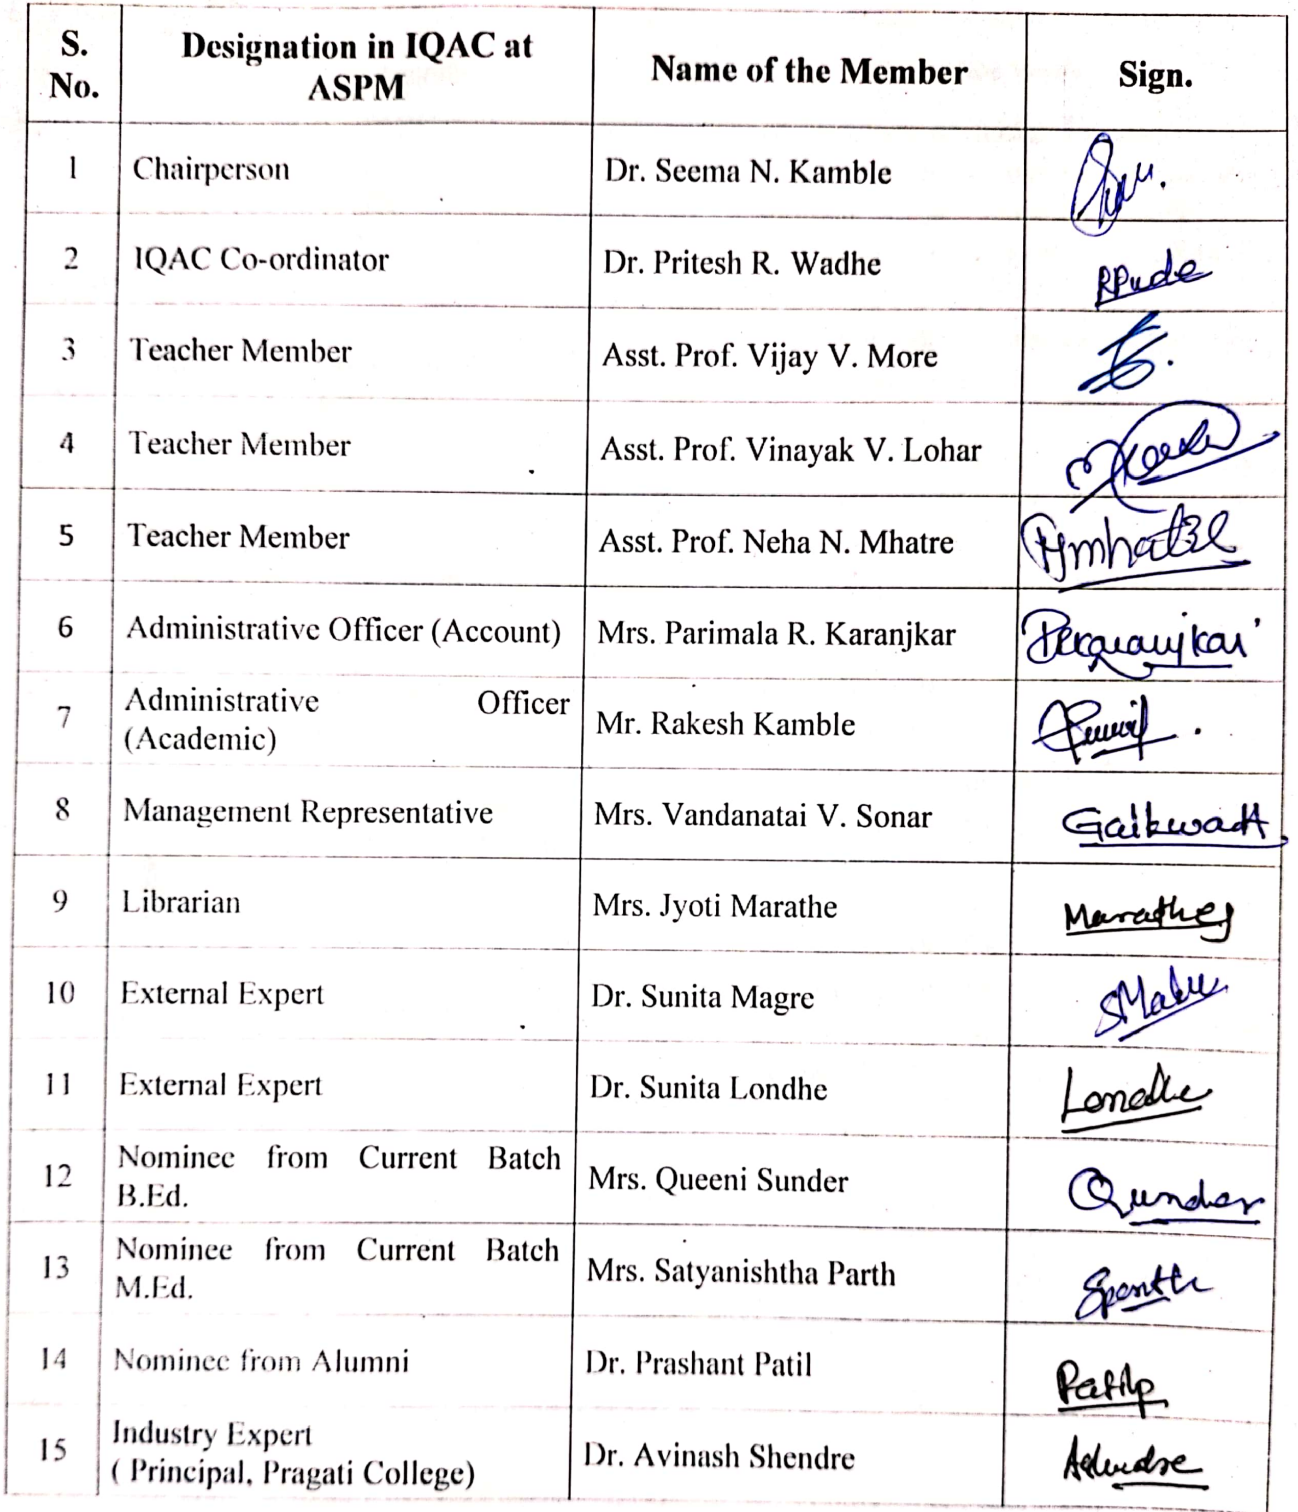 S. No. Designation in IQAC at ASPM Name of the Member Sign.
1 Chairperson Dr. Seema N. Kamble
2 IQAC Co-ordinator Dr. Pritesh R. Wadhe
3 Teacher Member Asst. Prof. Vijay V. More
4 Teacher Member Asst. Prof. Vinayak V. Lohar
5 Teacher Member Asst. Prof. Neha N. Mhatre
6 Administrative Officer (Account) Mrs. Parimala R. Karanjkar
7 Administrative Officer (Academic) Mr. Rakesh Kamble
8 Management Representative Mrs. Vandanatai V. Sonar
9 Librarian Mrs. Jyoti Marathe
10 External Expert Dr. Sunita Magre
11 External Expert Dr. Sunita Londhe Londhe
12 Nominee from Current Batch B.Ed. Mrs. Queeni Sunder
13 Nominee from Current Batch M.Ed. Mrs. Satyanishtha Parth
14 Nominee from Alumni Dr. Prashant Patil
15 Industry Expert ( Principal, Pragati College) Dr. Avinash Shendre